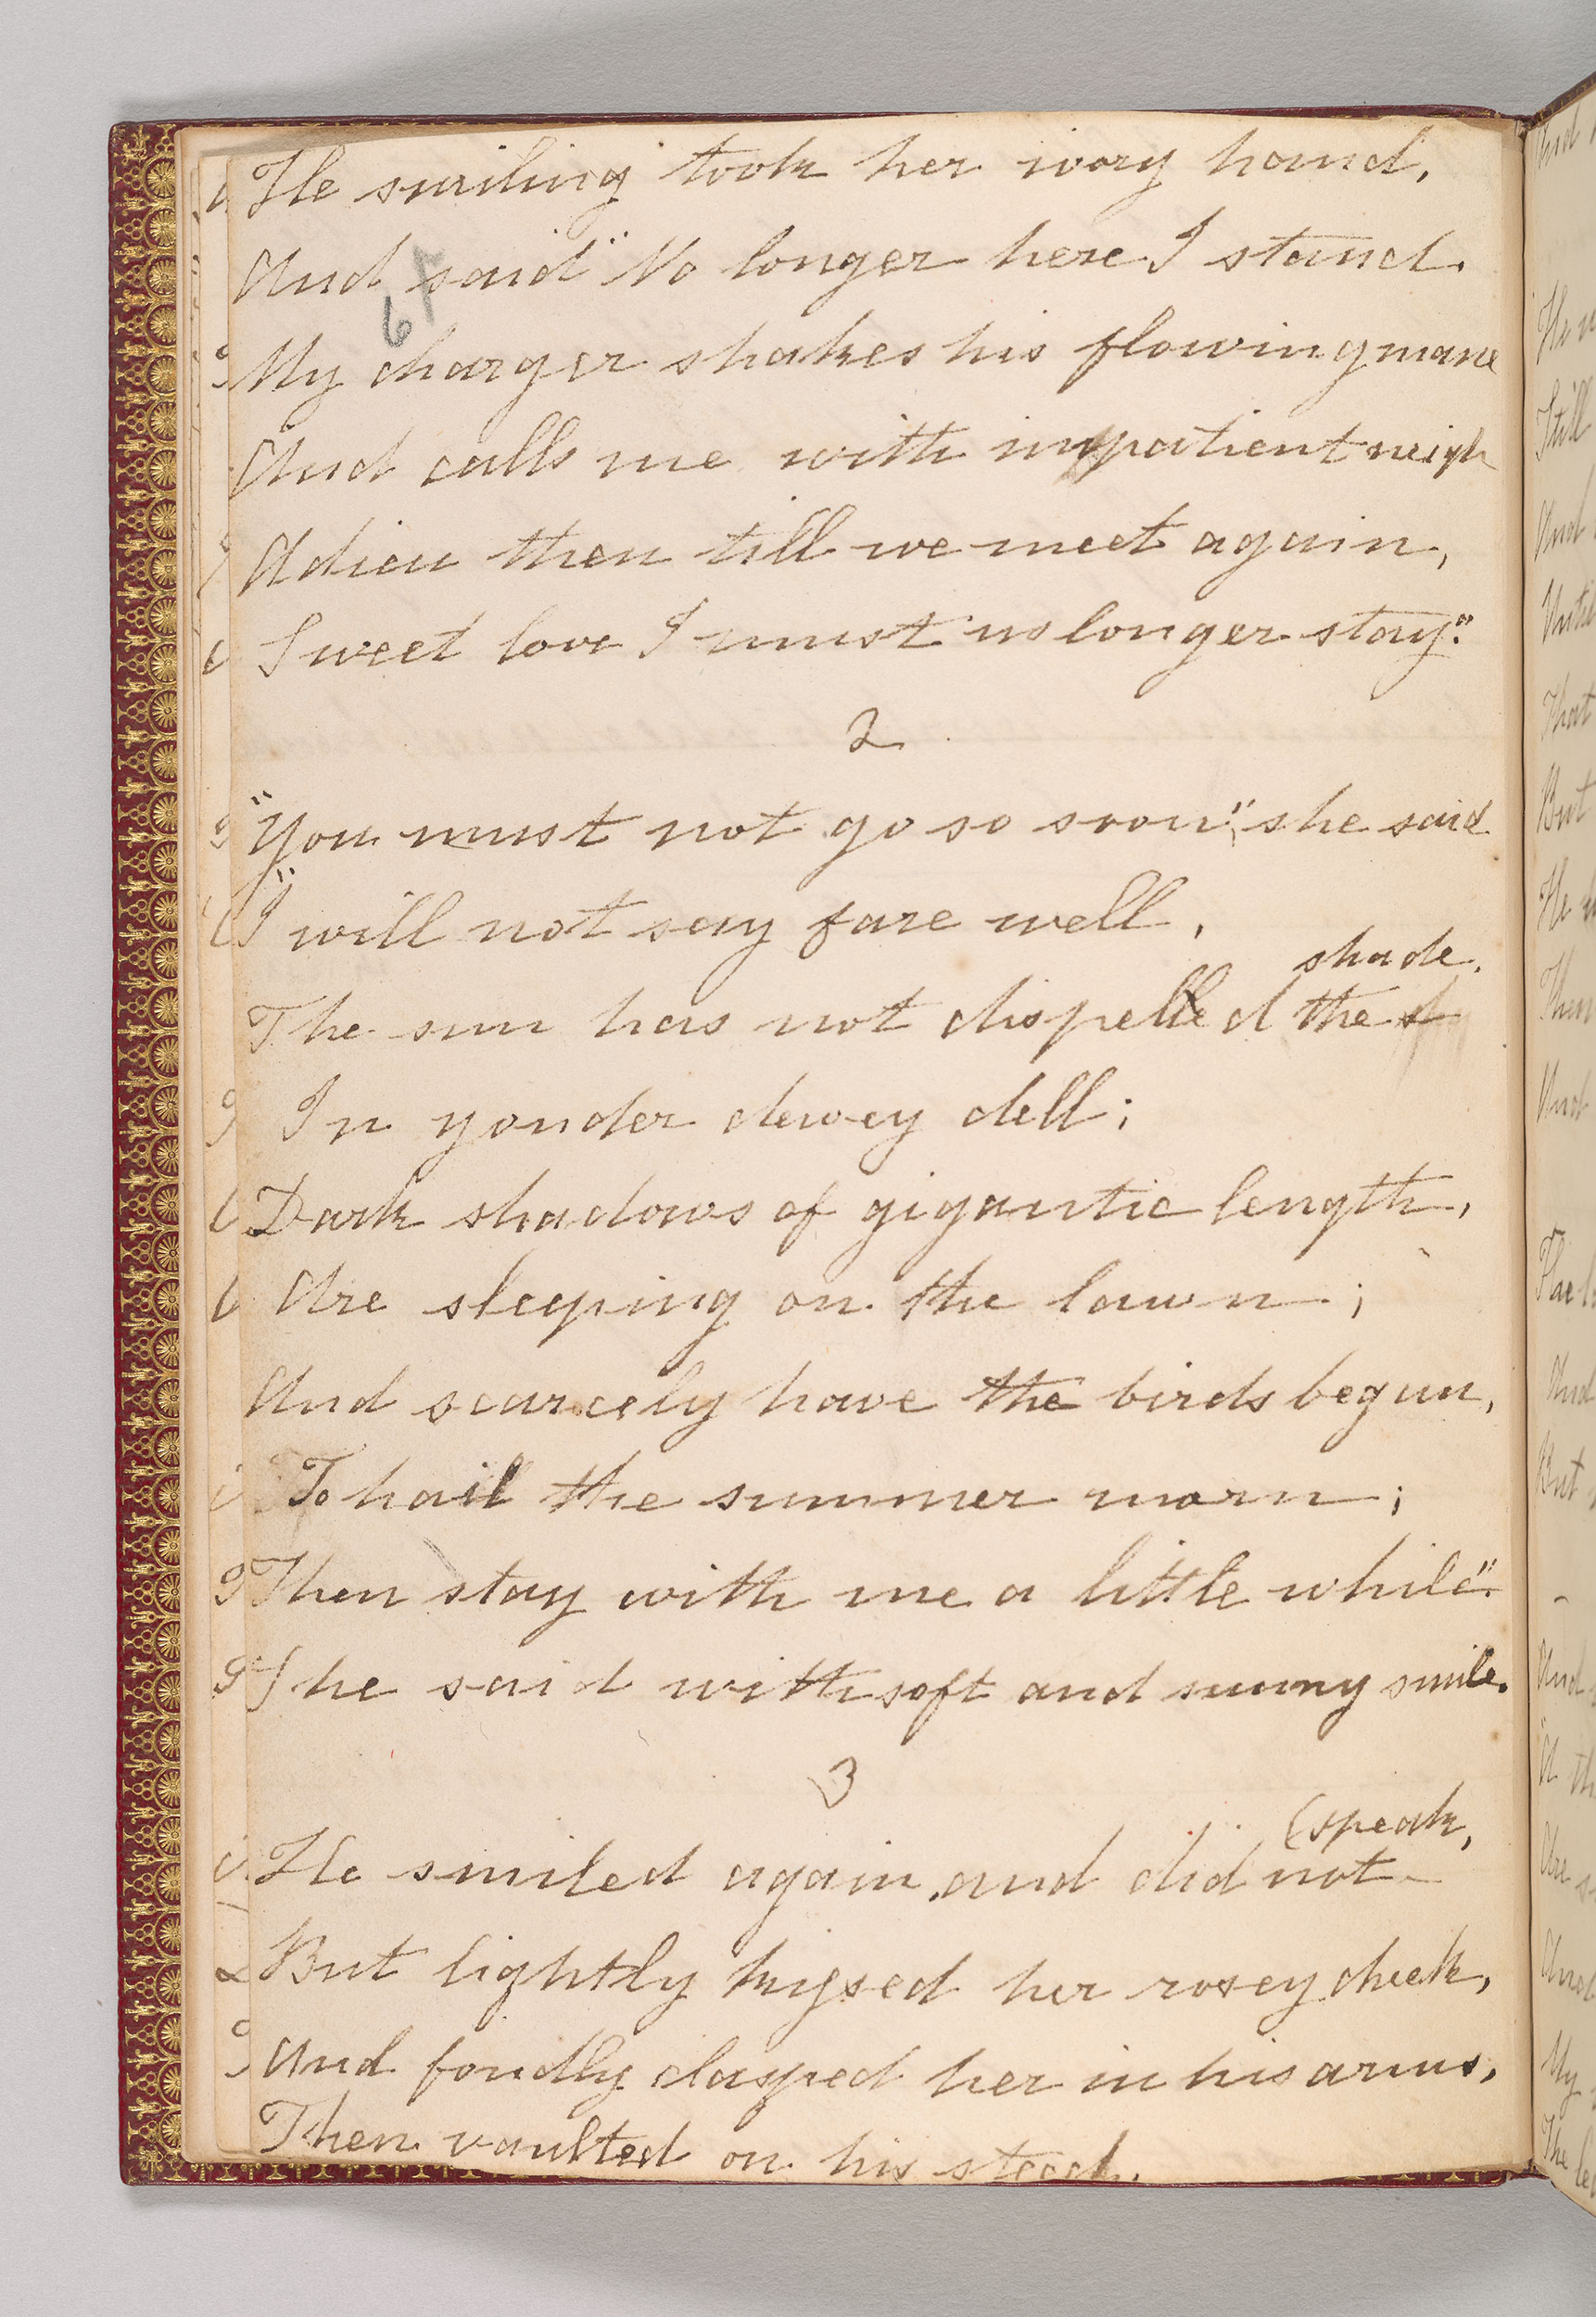 He smiling took her ivory hand,
And said "No longer here I stand.
67
My charger shakes his flowing mane
And calls me with impatient neigh
Adieu then till we meet again,
Sweet love I must no longer stay."
2
"You must not go so soon", she said
"I will not say fare well,
shade.
The sun has not dispelled the
In yonder dewey dell;
Dark shadows of gigantic length,
Are sleeping on the lawn;
And scarcely have the birds begun,
To hail the summer morn;
Then stay with me a little while".
She said with soft and sunny smile.
3
(speak,
He smiled again, and did not
But lightly kissed her rosey cheek,
And fondly clasped her in his arms,
Then vaulted on his steed.